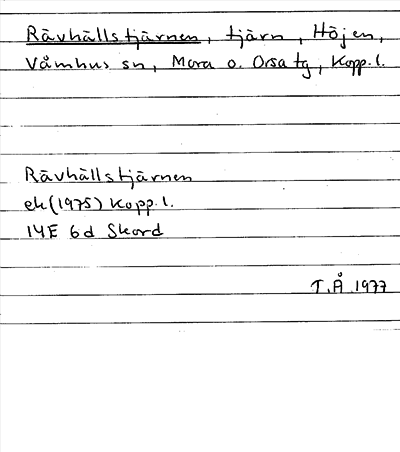 Rävhällstjärnen, tjärn, Höjen,
Våmhus sn, Mora o. Orsa tg, Kopp. l.
Rävhällstjärnen
ek (1975) Kopp. l.
14E 6d Skord
T.Å. 1977